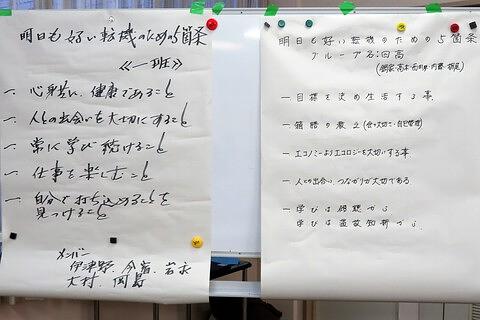 明日も好い転機のための5箇条
≪一班≫
一 心身共に健康であること
一 人との出会いを大切にすること
一 常に学び続けること
一 仕事を楽しむこと
一 自分で打ち込めることを
見つけること
メンバー
伊津野、今
大村、岡島
明日も好い転機のための5箇条
グループ名:四高
一 目標を決め生活する事
一 エコノミーよりエコロジーを大切にする事
一 人との出会い、つながりが大切である
一 学びは
学びは温故知新から